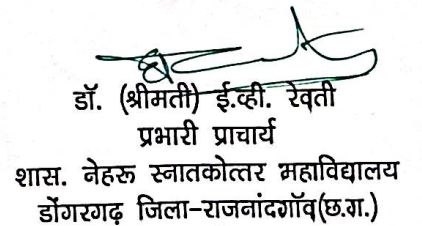 डॉ. (श्रीमती) ई.व्ही. रेवती
प्रभारी प्राचार्य
शास. नेहरू स्नातकोत्तर महाविद्यालय
डोंगरगढ़ जिला-राजनांदगॉव(छ.ग.)